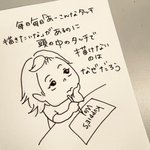 毎日毎日「あーこんなタッチ
描きたいな」があるのに
頭の中のタッチで
描けない
のは
なぜだろう